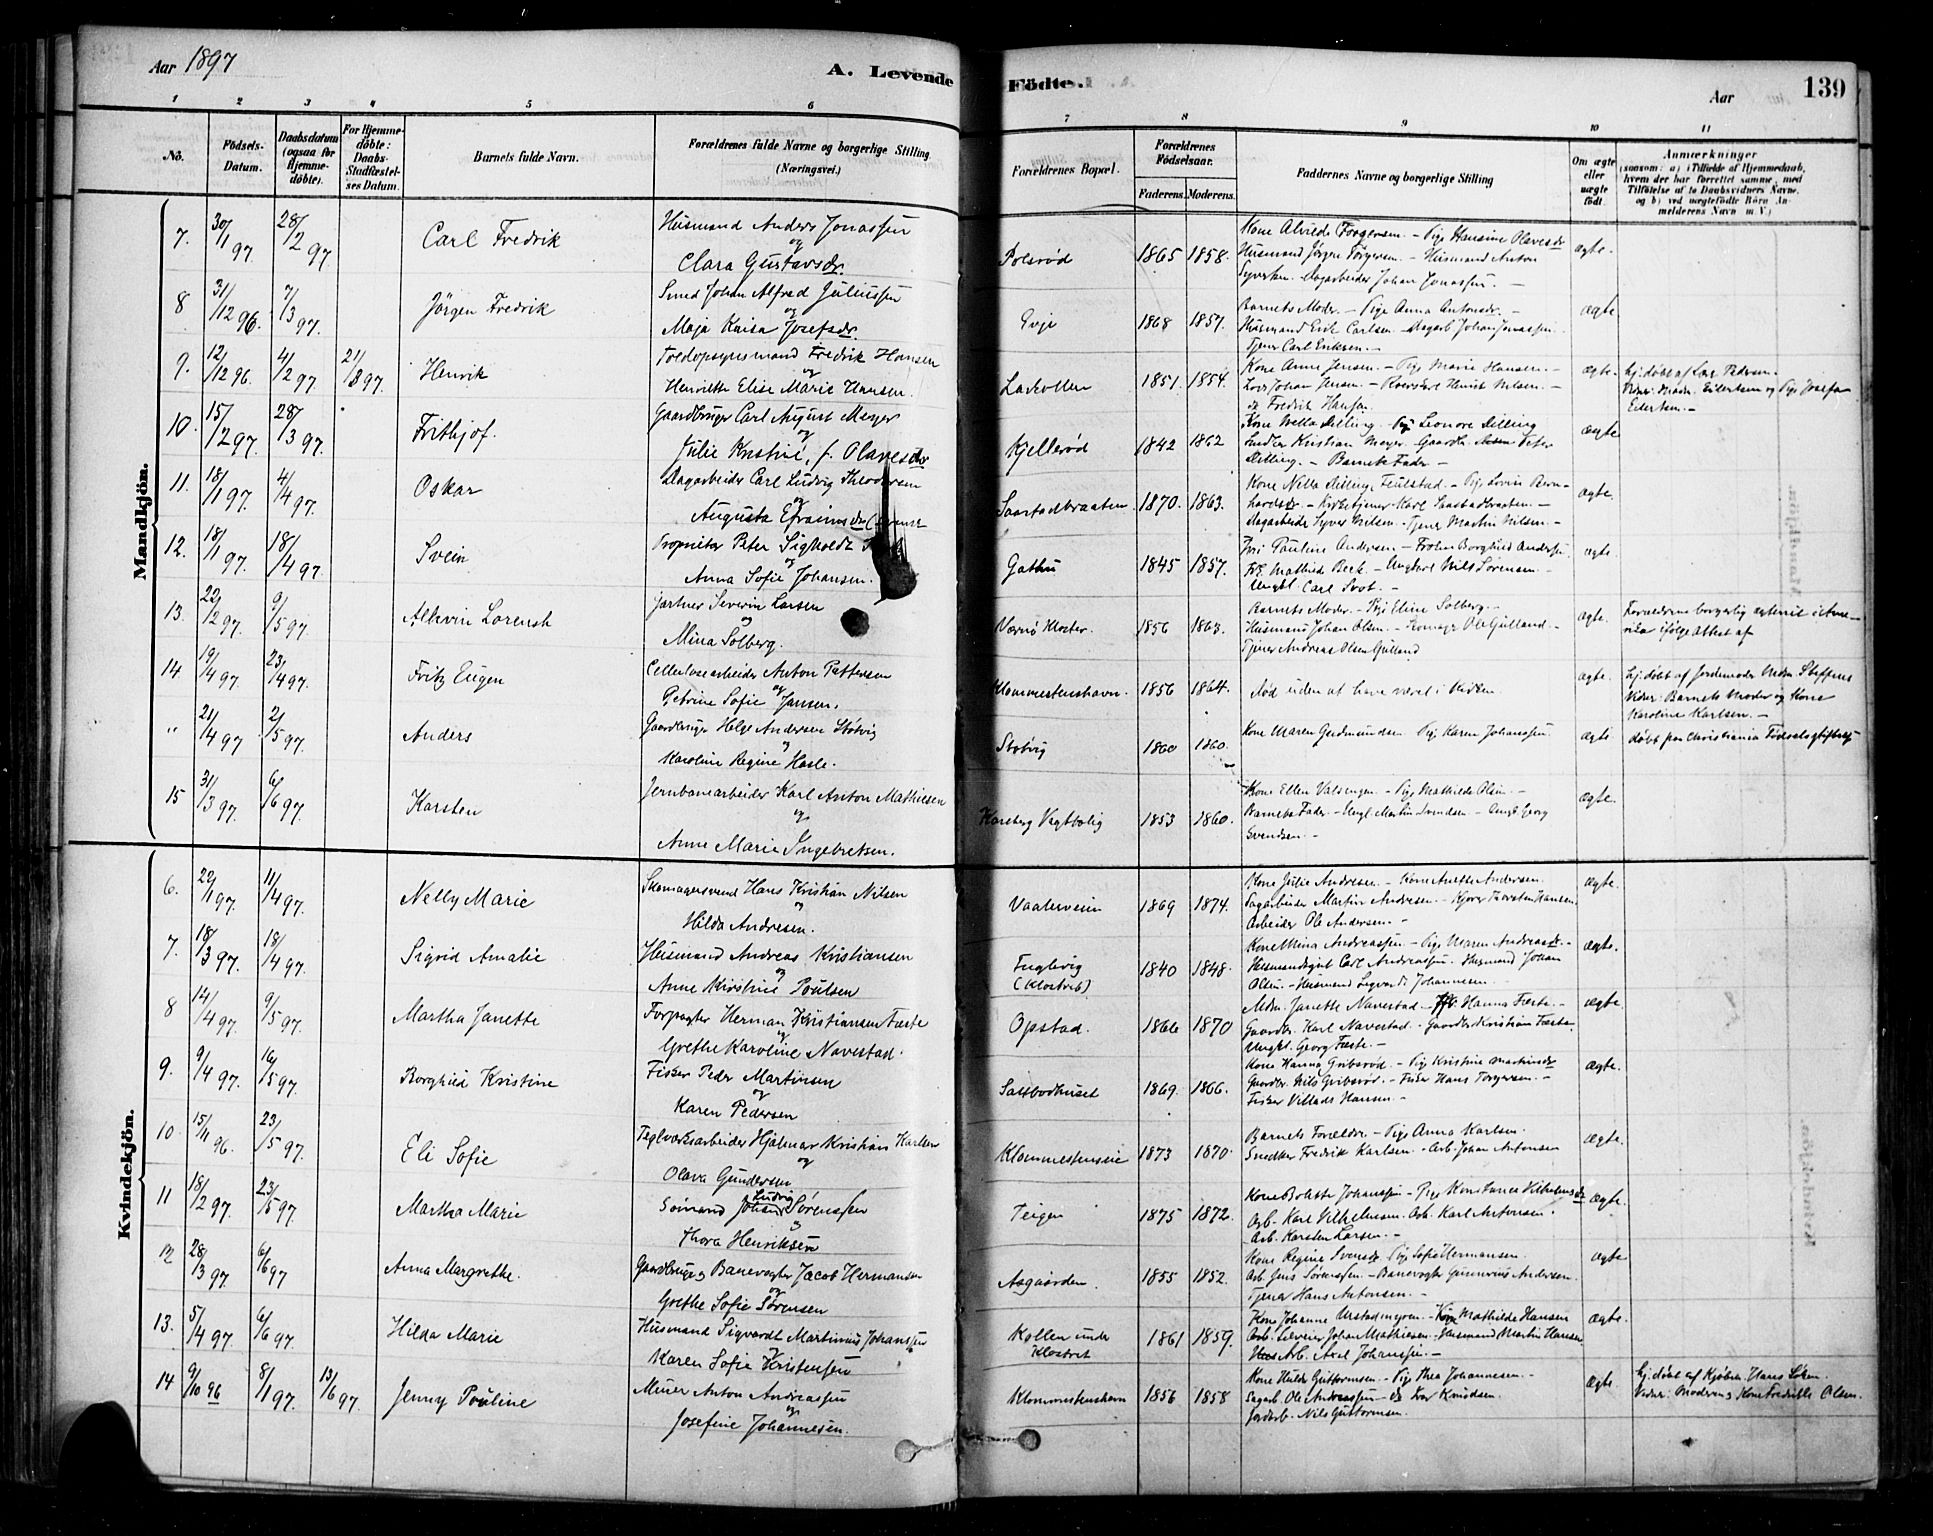 Aar 1897
A. Levende Födte.
Aar
139
1 2 3 4 5 6 7 8 9 10 11
No.
Födsels-Datum.
Daabsdatum (ogsaa for Hjemme-döbte).
For Hjemme-döbte: Daabs-Stadfæstel-ses Datum.
Barnets fulde Navn.
Forældrenes fulde Navne og borgerlige Stilling (Næringsvei.)
Forældrenes Bopæl.
Forældrenes Födselsaar.
Faderens. Moderens.
Faddernes Navne og borgerlige Stilling
Om ægte eller uægte födt.
Anmærkninger
(saasom: a) i Tilfælde af Hjemmedaab,
hvem der har forrettet samme, med
Tilföielse af to Daabsvidners Navne.
og b) ved uægtefödte Börn An-
melderens Navn m. V.)
Mandkjön.
7. 30/1 97 28/2 97. Carl Fredrik Husmand Anders Jonassen og Clara Gustavsdr. 1865 1858. ægte.
8 31/12 96. 7/3 97. Jörgen Fredrik Smed Johan Alfred Juliussen og Maja Kaisa Josefsdr. Evje 1868 1857. Barnets Moder. – Pige Anna Antonsdr. – Husmand Erik Carlsen – Dagarb Johan Jonassen Tjener Carl Eriksen. – ægte
9. 12/12 96. 4/2 97 21/3 97. Henrik Toldopsynsmand Fredrik Hansen og Henriette Elise Marie Hansen. Larkollen 1851. 1854. Kone Anne Jensen – Pige Marie Hansen. – Lods Johan Jensen – Fredrik Hansen ægte. Hj. döbt af
10. 15/12 97. 28/3 97. Frithjof. Gaardbruger Carl August Meyer og Julie Kristine, f. Olavesdr Kjellerød 1842 1862 Kristian Meyer – Barnets Fader – ægte
11. 18/1 97. 4/4 97. Oskar Dagarbeider Carl Ludvig Theodorsen og Augusta Efraimsdr Saastadbraaten 1870. 1863. Kirketjener Karl Saastadbraaten – Dagarbeider Syver Nilsen – Tjener Martin Nilsen – ægte
12. 18/1 97. 18/4 97. Svein Proprietær Peter Sigholdt og Anna Sofie Johansen. Gathu 1845 1857. Pauline Andersen – Frøken Borghild Andersen Mathilde Beck – Ungkarl Nils Sørensen – Ungk. Carl ægte.
13. 22/2 97. 9/5 97. Alkvin Lorensh Gartner Severin Larsen og Mina Solberg. Værnø Kloster. 1856 1863. Barnets Moder – Pige Eline Solberg. – Husmand Johan Olsen – Ole Gulland – Tjener Andreas Olsen Gulland ægte. Forældrene borgerlig ægteviet i Ame-rika ifølge Attest af
14 19/4 97. 23/4 97. Fritz Eugen Cellulosearbeider Anton Pettersen og Petrine Sofie Jansen. Klommestenshavn. 1856 1864. død uden at have været i Kirken ægte. Hj. döbt af Jordemoder Steffens Vidner: Barnets Moder og Kone Karoline Karlsen. –
" 21/4 97 2/5 97. Anders Gaardbruger Helge Andersen Støtvig og Karoline Regine Hasle. Støtvig 1860 1860. Kone Maren Gudmundsen Pige Karen Johanssen. ægte døbt paa Christiania Fødselsstiftelse
15 31/3 97. 6/6 97. Karsten Jernbanearbeider Karl Anton Mathiesen og Anne Marie Ingebretsen. Kaseberg Vogtbolig 1853 1860. Kone Ellen – Pige Mathilde Olsen – Barnets Fader – Ungk. Martin Svendsen – Ungk. Georg Svendsen. – ægte.
Kvindekjön.
6. 22/1 97. 11/4 97. Nelly Marie Skomagersvend Hans Kristian Nilsen og Hilda Andresen. Vaalerveien 1869 1874. Kone Julie Andresen – Kone Anette Andersen. Sagarbeider Martin Andresen. – Thorsten Hansen. Arbeider Ole Andersen. – ægte.
7. 18/3 97. 18/4 97. Sigrid Amalie Husmand Andreas Kristiansen og Anne Kirstine Poulsen Fuglevig (Klostret) 1840 1848. Kone Mina Andreassen – Pige Maren Andreasdr. – Husmandsgut Carl Andreassen. Husmand Johan Olsen. – Husmand Sigvard Johannesen. ægte.
8 14/4 97. 9/5 97. Martha Janette Forpagter Herman Kristiansen Fæste og Grethe Karoline Navestad. Opstad. 1866 1870 Janette Navestad – Hanna Fæste. – Gaardbr. Karl Navestad. Gaardbr Kristian Fæste. Ungk. Georg Fæste. – ægte.
9. 9/4 97. 16/5 97. Borghild Kristine Fisker Peder Martinsen og Karen Pedersen Saltbodhuset 1869. 1866. Kone Hanna Gribsrød. – Pige Kristine Martinsdr Gaardbr. Nils Gribsrød. – Fisker Hans Torgersen. – Fisker Villads Hansen. – ægte.
10. 15/11 96. 23/5 97. Eli Sofie Teglværksarbeider Hjalmar Kristian Karlsen og Olava Gundersen Klommestensveie 1873 1870. Barnets Forældre – Pige Anna Karlsen. Snedker Fredrik Karlsen. – Arb. Johan Antonsen ægte.
11 18/2 97. 23/5 97. Martha Marie Sömand Johan Ludvig Sørenssen og Thora Henriksen Teigen 1875 1872. Kone Bolette Johanssen – Pige Konstance Vilhelmsdr Arb. Karl Vilhelmsen. Arb. Karl Antonsen. Arb. Karsten Larsen. – ægte.
12 28/3 97 6/6 97 Anna Margrethe. Gaardbruger og Banevogter Jacob Hermansen og Grethe Sofie Sørensen Aagaarden. 1855 1852. Kone Regine Svensdr Pige Sofie Hermansen. Arb. Jens Sørenssen – Banevogter Gunerius Andersen. Tjener Hans Antonsen. ægte
13. 5/4 97 6/6 97. Hilda Marie Husmand Sigvardt Martinius Johanssen og Karen Sofie Kristensen Kollen under Klostret 1861 1859. Kone Johanne – Kone Mathilde Hansen Arb. Johan Mathiesen – Husmand Martin Hansen Arb. Axel Johanssen. – ægte.
14 9/10 96 8/1 97. 13/6 97 Jenny Pouline Murer Anton Andreassen og Josefine Johannesen. Klommestenshavn 1856 1858 Kone Hulda Guttormsen – Pige Thea Johannesen. – Sagarb. Ole Andreassen – do Ivar Knudsen. Jordarb. Nils Guttormsen. ægte. Hj. döbt af Kjøbm. Hans Vidner: Moder og Kone Fredrikke Olsen.